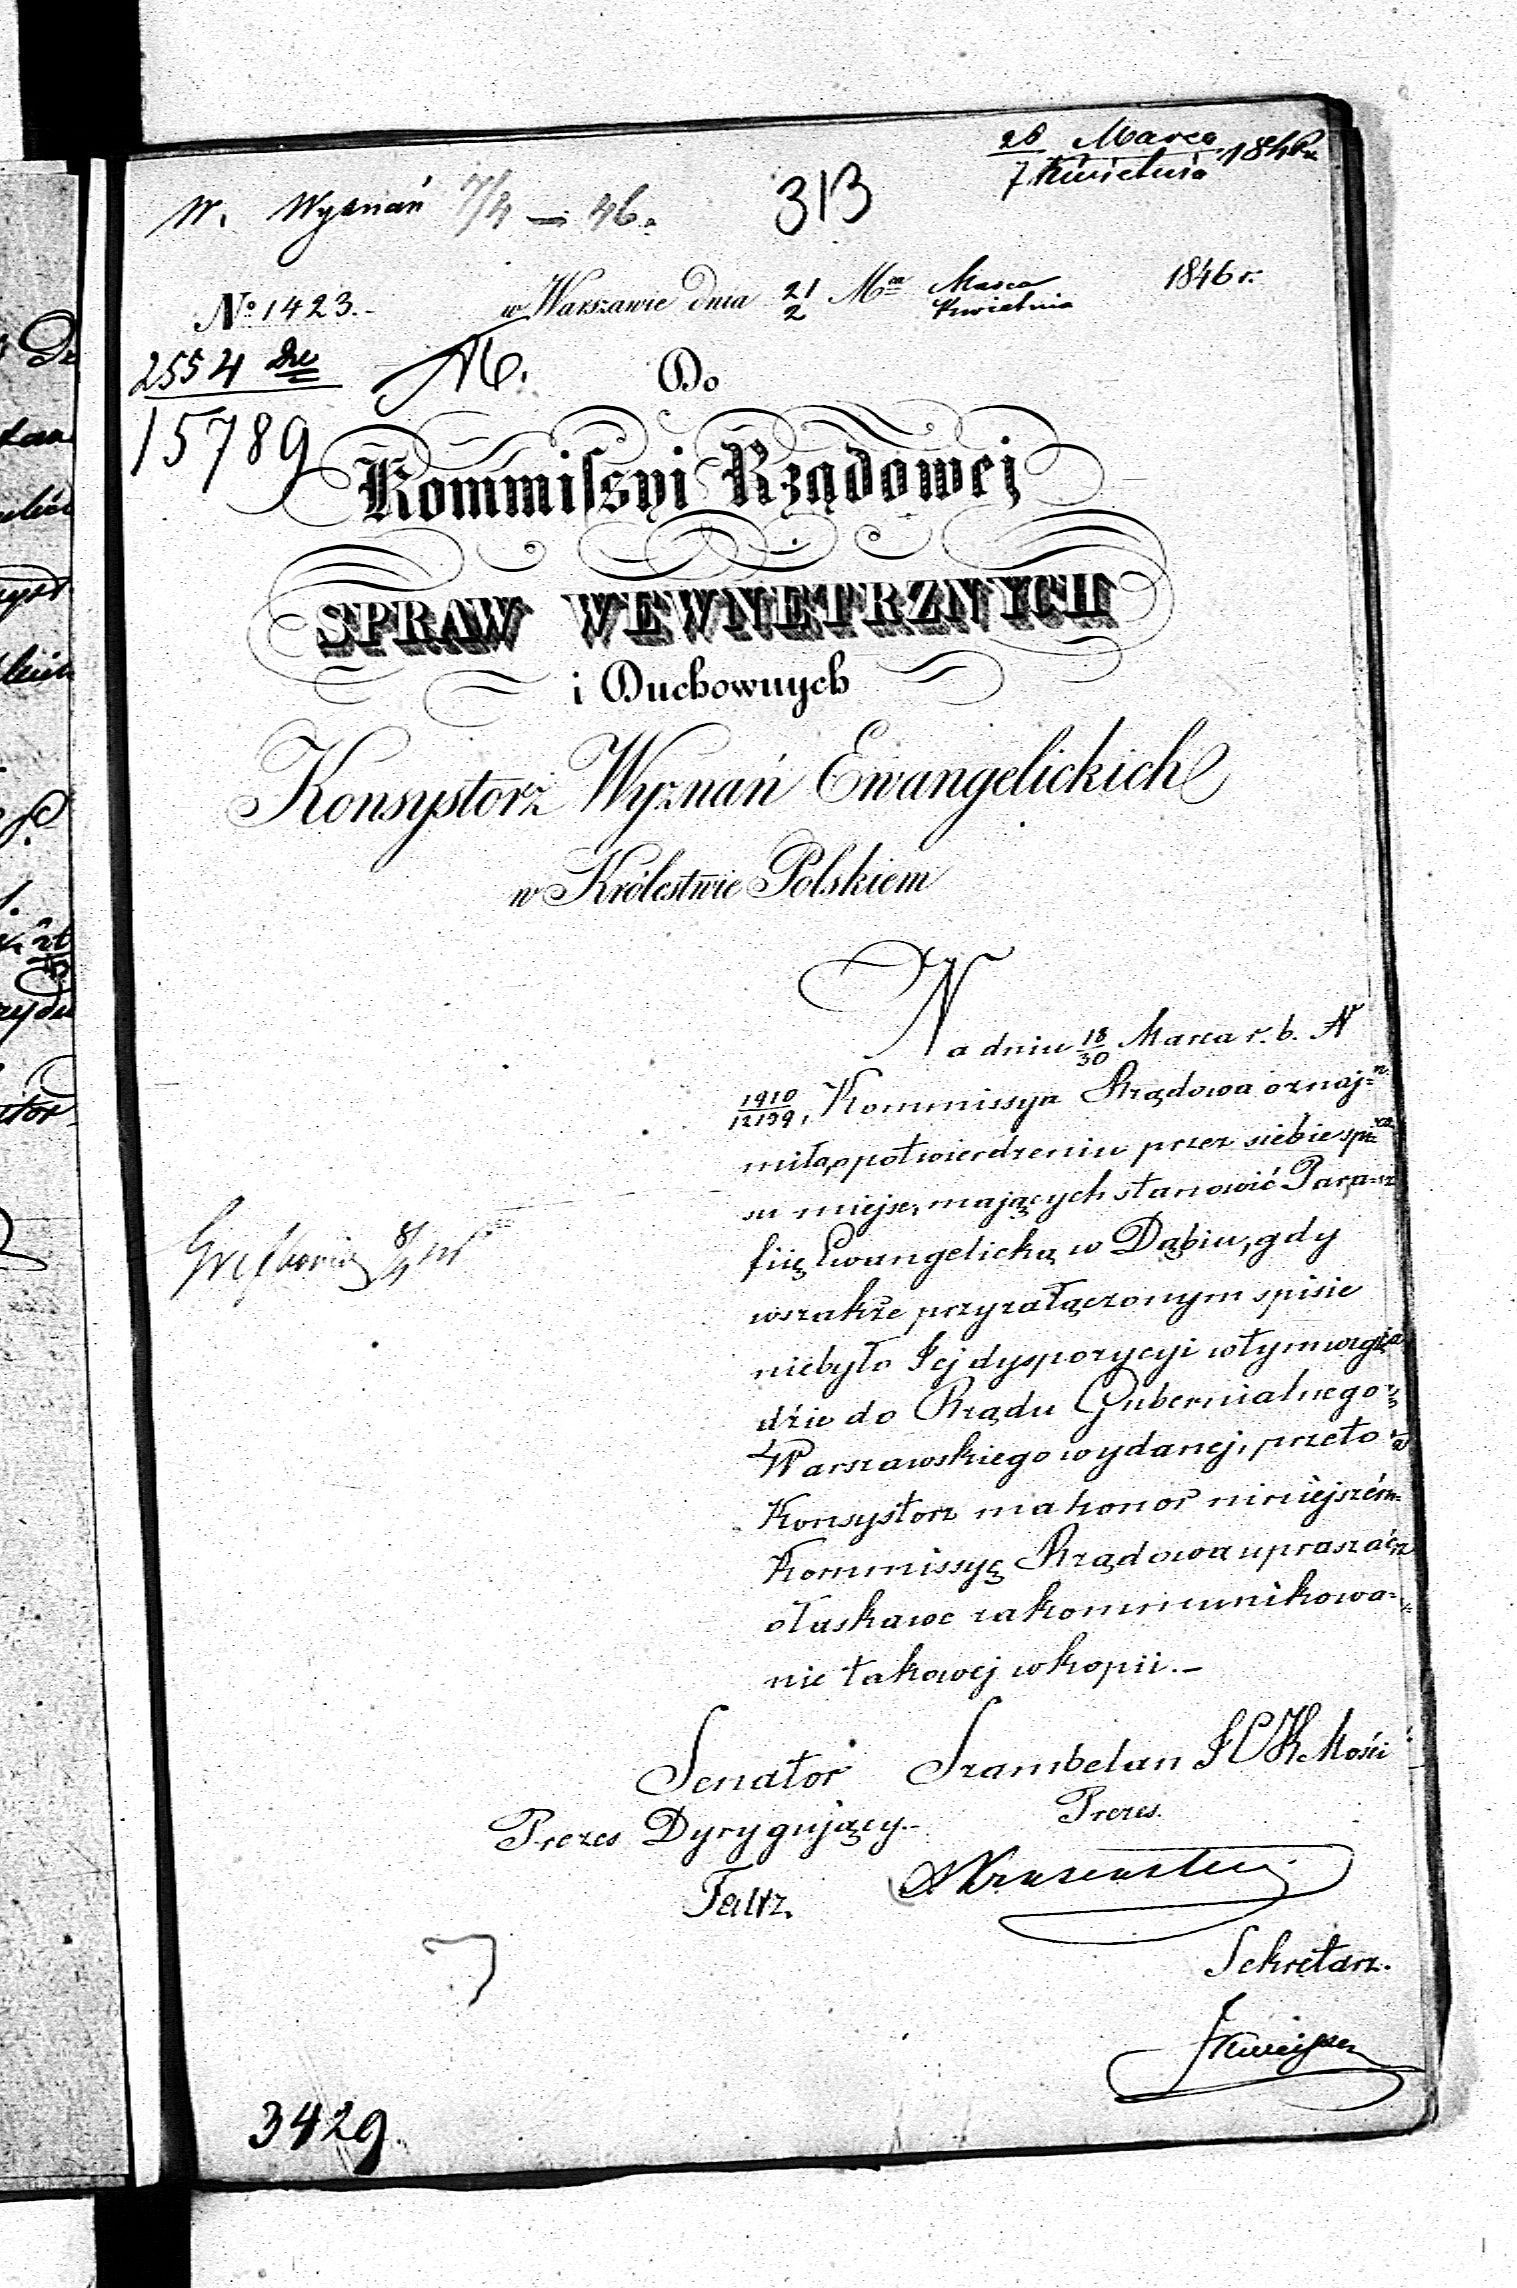 26 Marca
7 Kwietnia 1846 r.
W. Wyznań 7/4 – 46.
313
No 1423.
w Warszawie dnia 21/2 Mca Marca/Kwietnia 1846 r.
2554
15789
Do
Kommiſsyi Rządowej
SPRAW WEWNETRZNYCH
i Duchownych
Konsystorz Wyznań Ewangelickich
w Królestwie Polskiem
Na dniu 18/30 Marca r. b. N
1910/12159, Kommissya Rządowa oznaj-
miła o potwierdzeniu przez siebie spi-
su miejsc, mających stanowić Para-
fiię Ewangelicką w Dąbiu, gdy
wszakże przy załączonym spisie
niebyło Jej dyspozycyi w tym wzglę-
dzie do Rządu Gubernialnego
Warszawskiego wydanej, przeto
Konsystorz ma honor niniejszém
Kommissyę Rządowa upraszać
o łaskawe zakommunikowa-
nie takowej w kopii.–
Senator
Prezes Dyrygujący.
Szambelan J C K Mości
Prezes.
Sekretarz.
3429.